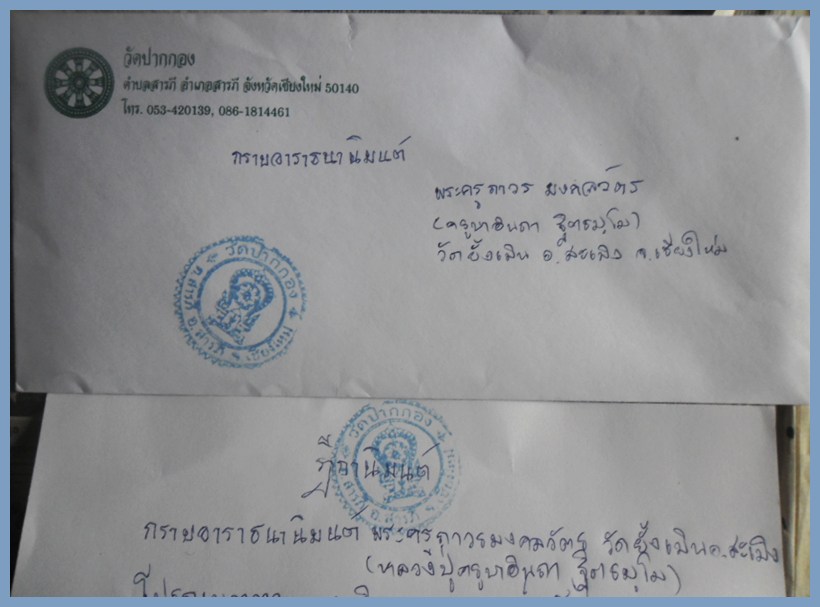 วัดปากกอง
ตำบลสารภี อำเภอสารภี จังหวัดเชียงใหม่ 50140
โทร. 053-420139, 086-1814461
กราบอาราธนานิมนต์
พระครูถาวร มงคลวัตร
(ครูบาอินถา ฐิตธมฺโม)
วัดยั้งเมิน อ.สะเมิง จ.เชียงใหม่
วัดปากกอง
ต.สารภี อ.สารภี จ.เชียงใหม่
วัดปากกอง
สารภี อ.สารภี จ.
ฎีกานิมนต์
กราบอาราธนานิมนต์ พระครูถาวรมงคลวัตร วัดยั้งเมิน อ.สะเมิง
(หลวงปู่ครูบาอินถา ฐิตธมฺโม)